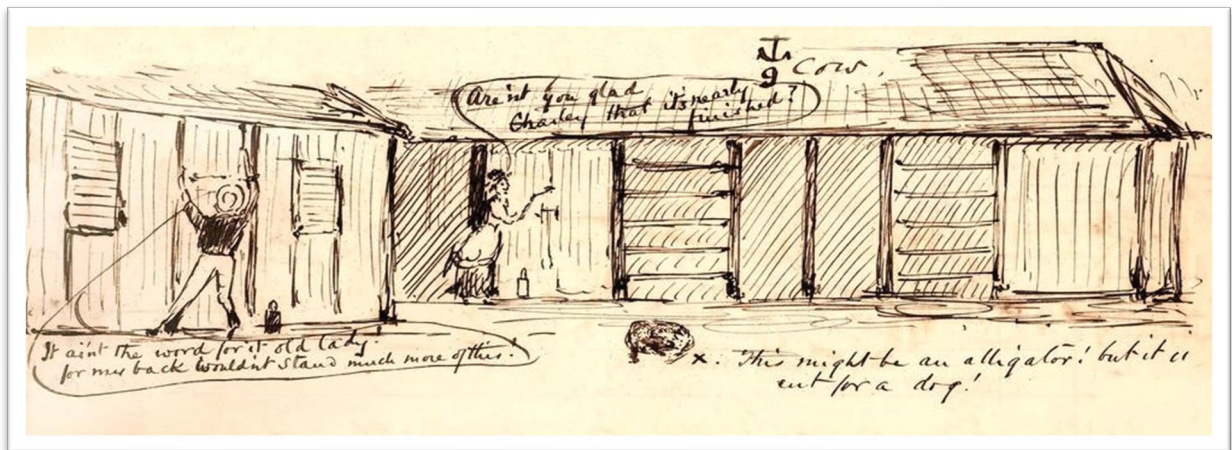 Are'nt you glad
Charley that it's nearly
finished?
9 Cow.
It ain't the word for it old lady.
for my back wouldn't stand much more of this!
x. This might be an alligator! but it is
ent for a dog!